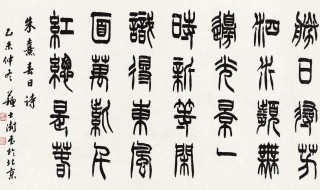 勝日尋芳
泗水濱無
邊光景一
時新等閒
識得東風
面萬紫千
紅總是春
朱熹春日詩
乙未仲冬 蘇士澍書於北京